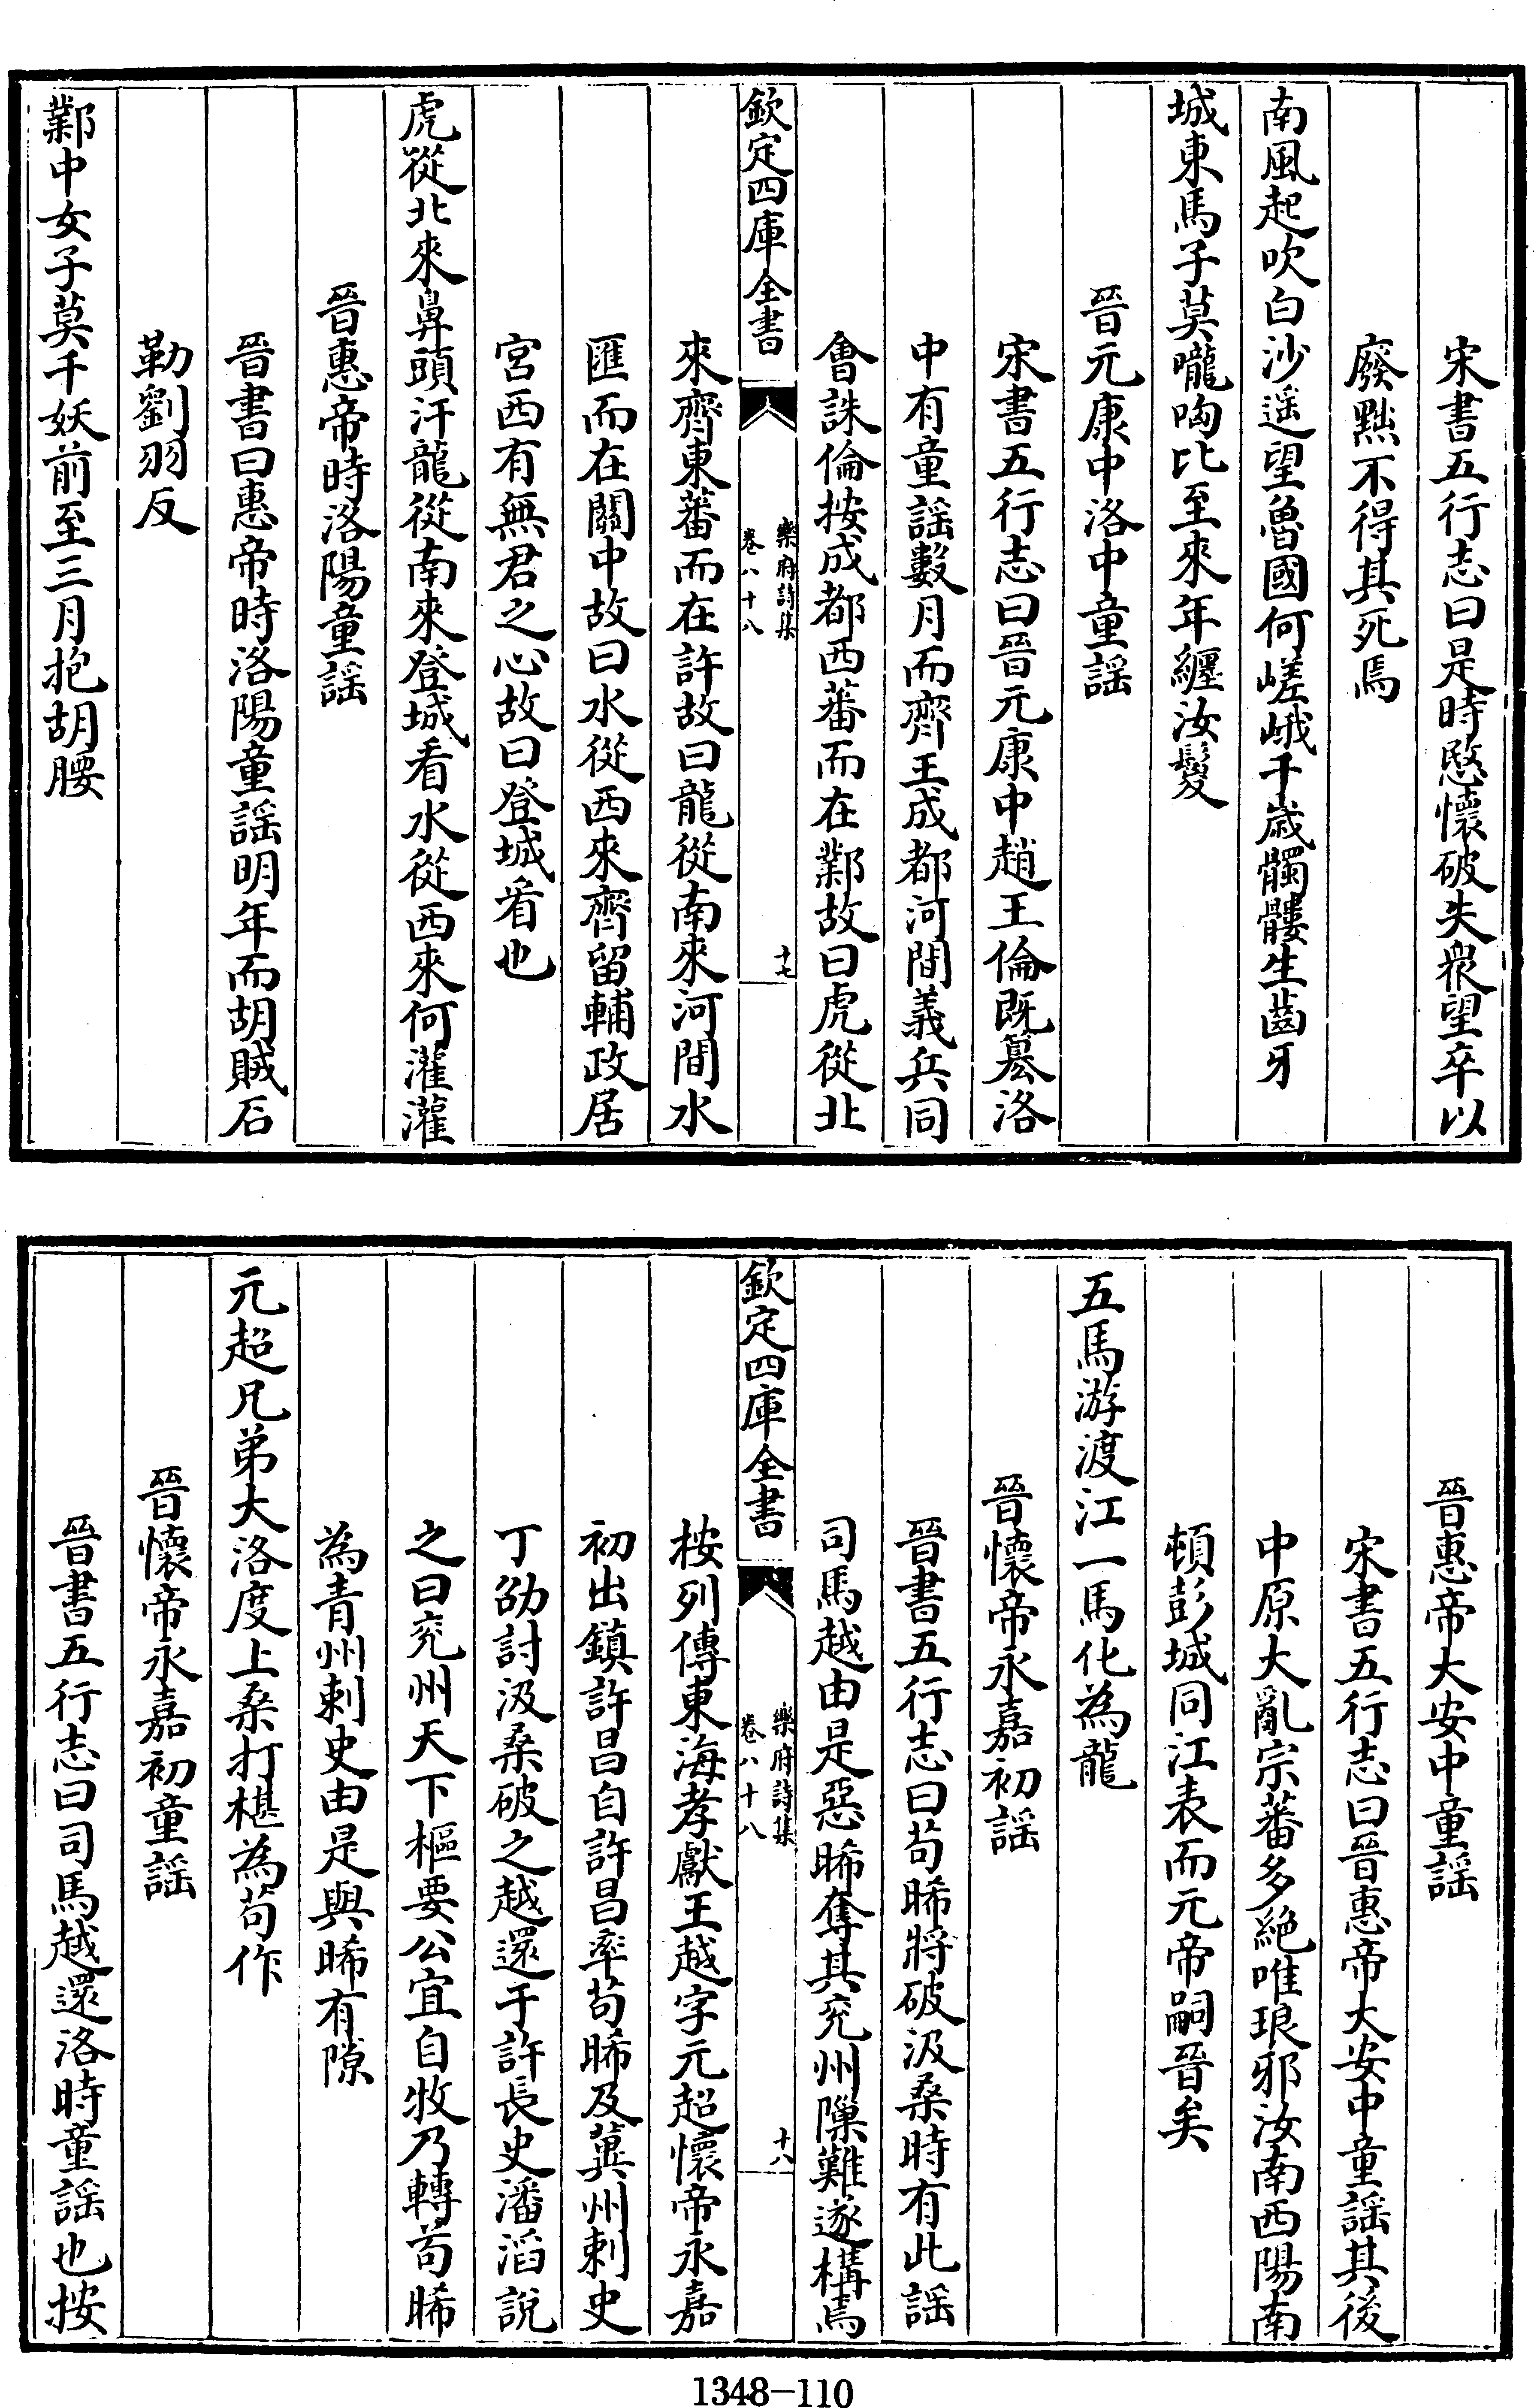 宋書五行志曰是時愍懷破失衆望卒以
廢黜不得其死焉
南風起吹白沙遥望魯國何嵯峨千歳髑髏生齒牙
城東馬子莫嚨哅比至來年纏汝鬉
晉元康中洛中童謡
宋書五行志曰晉元康中趙王倫既簒洛
中有童謡數月而齊王成都河間義兵同
會誅倫按成都西蕃而在鄴故曰虎從北
欽定四庫全書
樂府詩集
卷八十八
十七
來齊東蕃而在許故曰龍從南來河間水
匯而在關中故曰水從西來齊留輔政居
宮西有無君之心故曰登城看也
虎從北來鼻頭汗龍從南來登城看水從西來何灌灌
晉惠帝時洛陽童謡
晉書曰惠帝時洛陽童謡明年而胡賊石
勒劉羽反
鄴中女子莫千妖前至三月抱胡腰
晉惠帝大安中童謡
宋書五行志曰晉惠帝大安中童謡其後
中原大亂宗蕃多絶唯琅邪汝南西陽南
頓彭城同江表而元帝嗣晉矣
五馬游渡江一馬化為龍
晉懷帝永嘉初謡
晉書五行志曰苟晞將破汲桑時有此謡
司馬越由是惡晞奪其兖州隟難遂構焉
欽定四庫全書
樂府詩集
卷八十八
十八
按列傳東海孝獻王越字元超懷帝永嘉
初出鎮許昌自許昌率苟晞及冀州刺史
丁劭討汲桑破之越還于許長史潘滔說
之曰兖州天下樞要公宜自牧乃轉苟晞
為青州刺史由是與晞有隙
元超兄弟大洛度上桑打椹為苟作
晉懷帝永嘉初童謡
晉書五行志曰司馬越還洛時童謡也按
1348-110